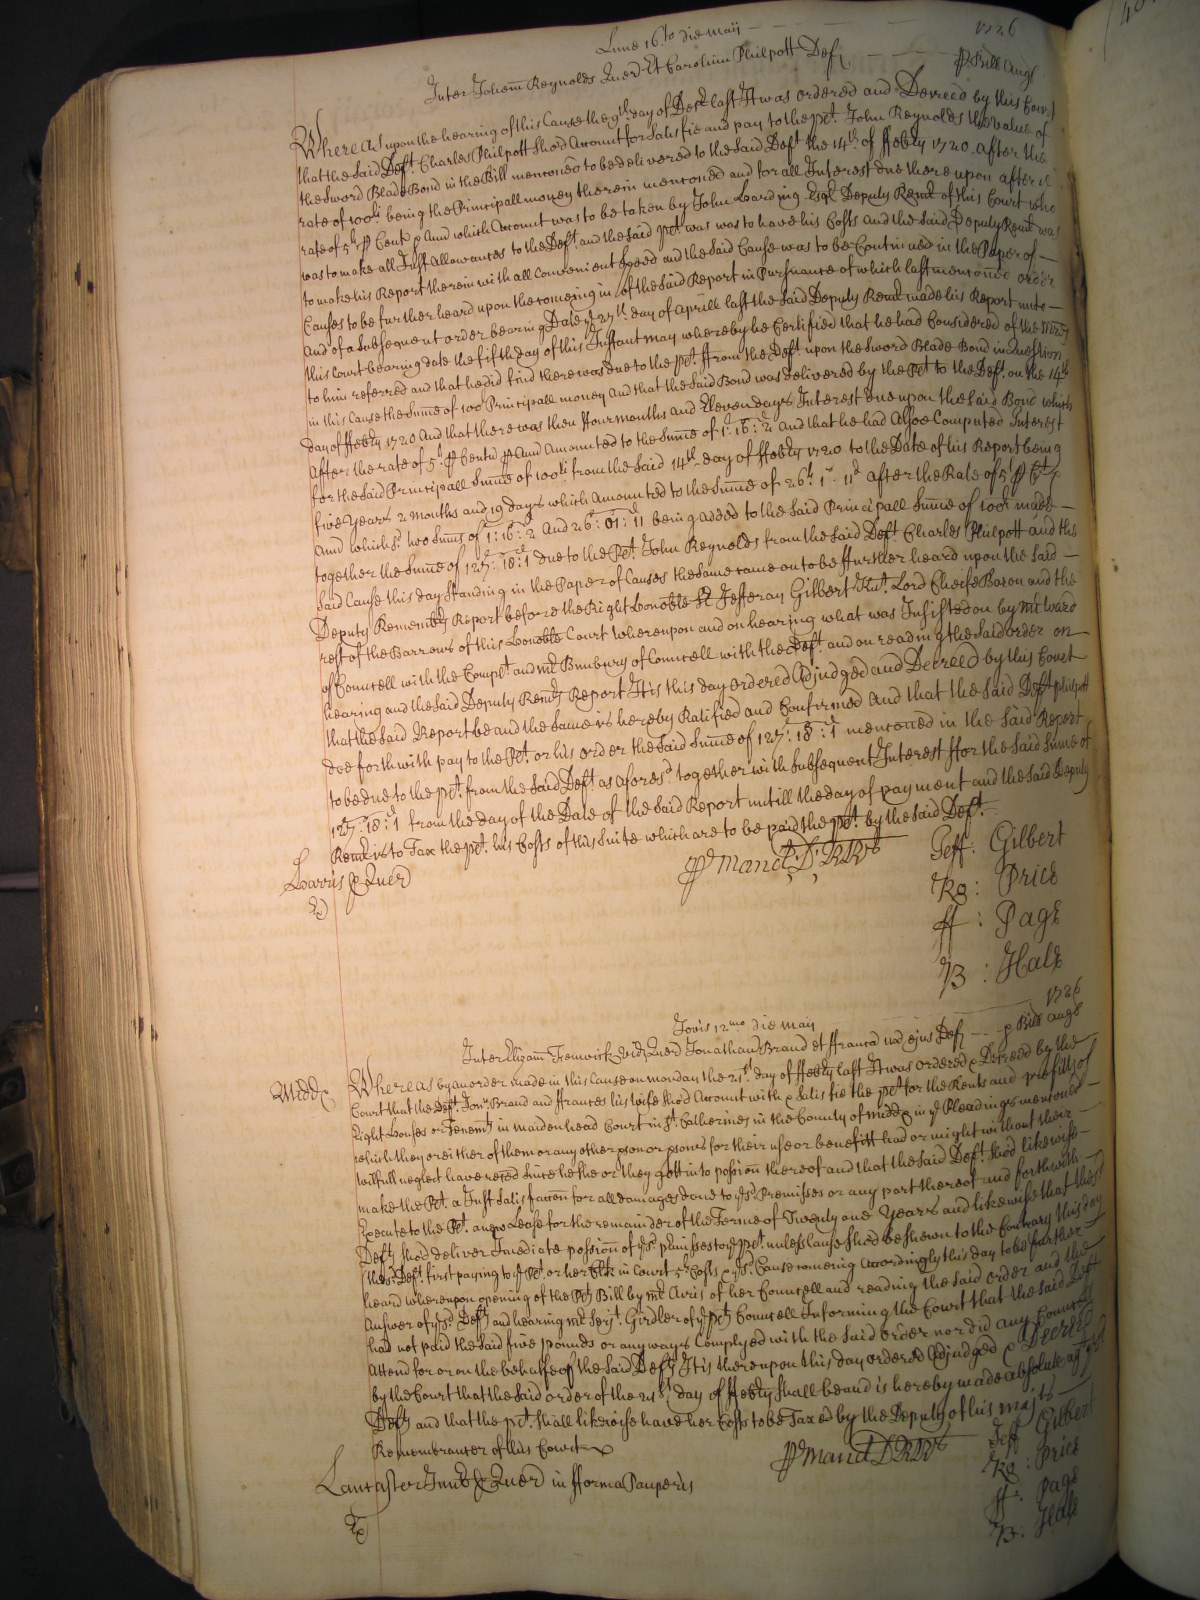 Lune 16.to die maij — 1726
Inter Johem Reynolds Quer Et Carolum Philpott Deft — p Bill Angl
Whereas upon the hearing of this Cause the 9th day of Decr last It was ordered and Decreed by this Court
that the Said Deft. Charles Philpott Shod Account for Satisfie and pay to the plt. John Reynolds the value of
the Sword Blade Bond in the Bill menconed to be delivered to the Said Deft the 14th of ffebry 1720. after the
rate of 100li being the Principall money therein menconed and for all Interest due thereupon after ye
rate of 5li p Cent p Ann which Account was to be taken by John Harding Esqr Deputy Remr of this Court who
was to make all Just allowances to the Deft. and the Said plt. was to have his Costs and the Said Deputy Remr was
to make his Report therein with all Convenient Speed and the Said Cause was to be Continued in the Paper of —
Causes to be further heard upon the comeing in of the Said Report in Pursuance of which last menconed order
And of a Subsequent order bearing Date ye 27th. day of Aprill last the Said Deputy Remr made his Report unto —
this Court bearing date the fifth day of this Instant may whereby he Certified that he had Considered of the
to him referred and that he did find there was due to the plt. ffrom the Deft. upon the Sword Blade Bond in Question
in this Cause the Sume of 100 Principall money And that the Said Bond was delivered by the Plt to the Deft. on the 14th
day of ffebry 1720 And that there was then ffour months and Eleven dayes Interest due upon the Said Bond which
After the rate of 5li. p Cent p Ann Amounted to the Sume of 1: 16: 2 And that he had Alsoe Computed Interest
for the Said Principall Sume of 100li from the Said 14th day of ffebry 1720 to the Date of his Report being
five Years 2 months and 19 days which Amounted to the Sume of 26li 1s 11d after the Rate of 5li p Ct p
Ann which sd. two Sums of 1: 16: 2 And 26: 01: 11 being added to the Said Principall Sume of 100li made —
together the Sume of 127: 18: 1 due to the Plt. John Reynolds from the Said Deft Charles Philpott and the
Said Cause this day Standing in the Paper of Causes the Same came on to be ffurther heard upon the Said —
Deputy Remembrs Report before the Right Honoble Sr Jefferay Gilbert Knt. Lord Cheife Baron and the
rest of the Barrons of this Honoble Court Whereupon and on hearing what was Insisted on by mr Ward
of Councell with the Complt. and mr Bunbury of Councell with the Deft and on reading the Said order on
hearing and the Said Deputy Remrs Report It is this day ordered Adjudged and Decreed by this Court
that the Said Report be and the Same is hereby Ratified and Confirmed And that the Said Deft Philpott
doe forthwith pay to the Plt. or his order the Said Sume of 127: 18: 1 mentoned in the Said Report
to be due to the plt. from the Said Deft as aforesd. together with Subsequent Interest ffor the Said Sume of
127: 18: 1 from the day of the Date of the Said Report untill the day of payment and the Said Deputy
Remr is to Tax the plt. his Costs of this Suite which are to be paid the plt. by the Said Deft.
Harris p Quer
p mand D R R
Geff: Gilbert
Ro: Price
ff: Page
B: Hale
Jovis 12mo die maij — 1726
Inter Elizam Fenwick vid Quer Jonathan Brand et ffrancd ux ejus Defts — p Bill Angl
Middx
Whereas by an order made in this Cause on monday the 21st. day of ffebry last It was ordered & Decreed by the
Court that the Deft. Jon. Brand and ffrances his wife Shod Account with & Satisfie the plt for the Rents and profitts of
Eight Houses or Tenemts in maidenhead Court in St. Catherines in the County of Middx in ye Pleadings mentoned —
which they or either of them or any other pson or psons for their use or benefitt had or might without their —
willfull neglect have reced Since he the or they gott into possion thereof and that the Said Deft. Shod likewise
make the Plt. a Just Satisfaction for all damages done to ye sd Premisses or any part thereof and forthwith —
Execute to the Plt. a new Lease for the remainder of the Terme of Twenty one Years and likewise that the sd
Defts Shod deliver Imediate possion of ye sd. pmisses to ye plt. unless Cause Shod be shewn to the Contrary this day
the sd: Deft. first paying to ye Plt. or her Clk in Court 5li Costs & ye sd. Cause comeing Accordingly this day to be further —
heard whereupon opening of the Plts Bill by mr Avris of her Councell and reading the Said order and the
Answer of ye sd. Defts and hearing mr Serjt. Girdler of ye plts Councell Informing the Court that the Said Deft
had not paid the Said five pounds or any ways Complyed with the Said order nor did any Councell
Attend for or on the behalfe of the Said Defts It is thereupon this day ordered Adjudged & Decreed
by the Court that the Said order of the 21st day of ffebry Shall be and is hereby made absolute agt ye sd
Defts and that the plt. Shall likewise have her Costs to be Taxed by the Deputy of his majts —
Remembrancer of this Court
Lancaster Junr p Quer in fforma Pauperis
p mand D R R
Jeff Gilbert
Ro: Price
ff: Page
B: Hale